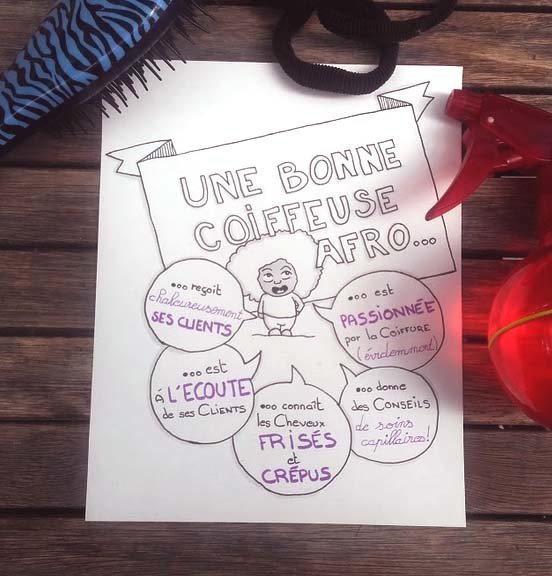 UNE BONNE
COiFFEUSE
AFRO...
... reçoit
chaleureusement
SES CLIENTS
... est
PASSIONNÉE
par la COiFFURE
(évidemment)
... est
À L'ECOUTE
de ses CLients
... connaît
les Cheveux
FRiSÉS
et
CRÉPUS
... donne
des CONSEiLS
de soins
capillaires!